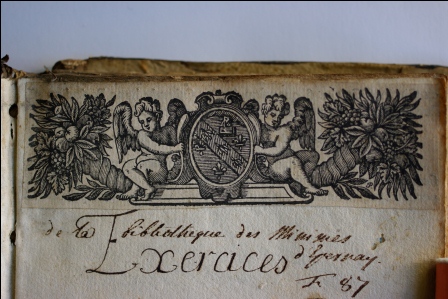 de la Bibliotheque des Minimes
d'Epernay.
Exercices
F. 87